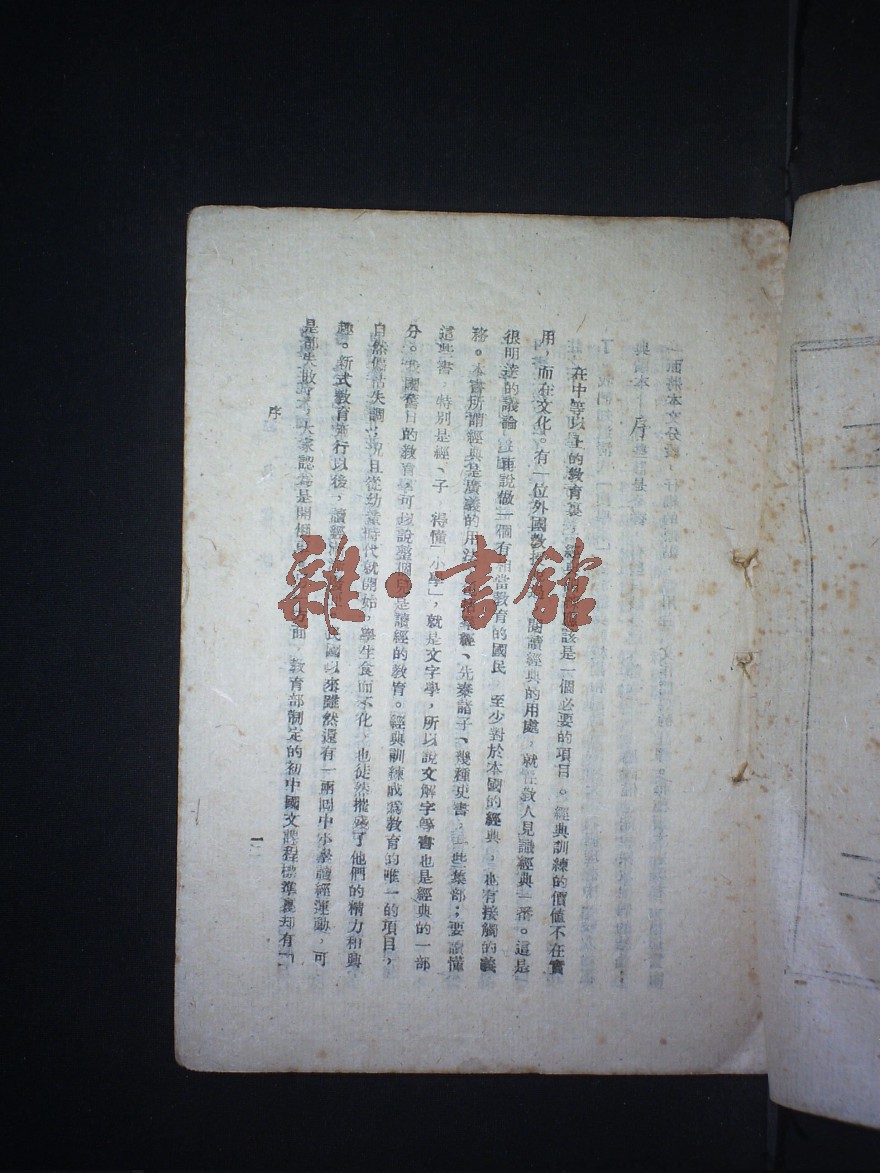 序
在中等以上的教育裏,經典訓練應該是一個必要的項目。經典訓練的價值不在實
用,而在文化。有一位外國教授說過,閱讀經典的用處,就在教人見識經典一番。這是
很明達的議論。再說做一個有相當教育的國民,至少對於本國的經典,也有接觸的義
務。本書所謂經典是廣義的用法,包括羣經、先秦諸子、幾種史書、一些集部;要讀懂
這些書,特別是經、子,得懂「小學」,就是文字學,所以說文解字等書也是經典的一部
分。我國舊日的教育,可以說整個兒是讀經的教育。經典訓練成爲教育的唯一的項目,
自然偏枯失調;況且從幼童時代就開始,學生食而不化,也徒然摧殘了他們的精力和興
趣。新式教育施行以後,讀經漸漸廢止。民國以來雖然還有一兩回中小學讀經運動,可
是都失敗了,大家認爲是開倒車。另一方面,教育部制定的初中國文課程標準裏却有「
序
一
雜·書館